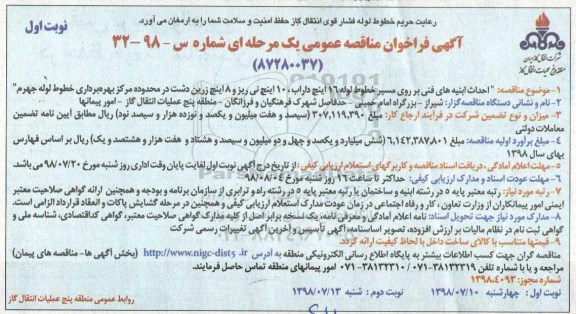 رعایت حریم خطوط لوله فشار قوی انتقال گاز حفظ امنیت و سلامت شما را به ارمغان می آورد.
نوبت اول
آگهی فراخوان مناقصه عمومی یک مرحله ای شماره س - ۹۸ - ۳۲
(۸۷۲۸۰۰۳۷)
شرکت ملی گاز ایران
۱-موضوع مناقصه: "احداث ابنیه های فنی بر روی مسیر خطوط لوله ۱۶ اینچ داراب، ۱۰ اینچ نی ریز و ۸ اینچ زرین دشت در محدوده مرکز بهره برداری خطوط لوله جهرم"
۲-نام و نشانی دستگاه مناقصه گزار: شیراز - بزرگراه امام خمینی - حدفاصل شهرک فرهنگیان و فرزانگان - منطقه پنج عملیات انتقال گاز - امور پیمانها
۳- میزان و نوع تضمین شرکت در فرآیند ارجاع کار: مبلغ ۳۰۷,۱۱۹,۳۹۰ (سیصد و هفت میلیون و یکصد و نوزده هزار و سیصد نود) ریال مطابق آیین نامه تضمین معاملات دولتی
۴- مبلغ برآورد اولیه مناقصه: مبلغ ۶,۱۴۲,۳۸۷,۸۰۱ (شش میلیارد و یکصد و چهل و دو میلیون و سیصد و هشتاد و هفت هزار و هشتصد و یک) ریال بر اساس فهارس بهای سال ۱۳۹۸
۵-مهلت اعلام آمادگی، دریافت اسناد مناقصه و کاربرگهای استعلام ارزیابی کیفی: از تاریخ درج آگهی نوبت اول لغایت پایان وقت اداری روز شنبه مورخ ۹۸/۰۷/۲۰ می باشد.
۶- مهلت عودت اسناد و مدارک ارزیابی کیفی: حداکثر تا ساعت ۱۶ روز شنبه مورخ ۹۸/۰۸/۰۴
۷- رتبه مورد نیاز: رتبه معتبر پایه ۵ در رشته ابنیه و ساختمان یا رتبه معتبر پایه ۵ در رشته راه و ترابری از سازمان برنامه و بودجه و همچنین ارائه گواهی صلاحیت معتبر ایمنی امور پیمانکاران از وزارت تعاون، کار و رفاه اجتماعی در زمان عودت مدارک استعلام ارزیابی کیفی و همچنین در مرحله گشایش پاکات و انعقاد قرارداد الزامی است.
۸- مدارک مورد نیاز جهت تحویل اسناد: نامه اعلام آمادگی و معرفی نامه، یک نسخه برابر اصل از کلیه مدارک گواهی صلاحیت معتبر، گواهی کداقتصادی، شناسه ملی و گواهی ثبت نام در نظام مالیات بر ارزش افزوده، تصویر اساسنامه، آگهی تأسیس و آخرین آگهی تغییرات رسمی شرکت
۹- قیمتها متناسب با کالای ساخت داخل با لحاظ کیفیت ارائه گردد.
مناقصه گران جهت کسب اطلاعات بیشتر به پایگاه اطلاع رسانی الکترونیکی منطقه به آدرس http://www.nigc-dist5.ir (بخش آگهی ها- مناقصه های پیمان) مراجعه و یا با شماره تلفن ۳۸۱۳۲۳۱۹-۰۷۱ / ۳۸۱۳۲۳۱۰-۰۷۱ امور پیمانهای منطقه تماس حاصل فرمایند.
شماره مجوز: ۱۳۹۸,۴۰۹۳
نوبت اول: چهارشنبه ۱۳۹۸/۰۷/۱۰ نوبت دوم: شنبه ۱۳۹۸/۰۷/۱۳
روابط عمومی منطقه پنج عملیات انتقال گاز